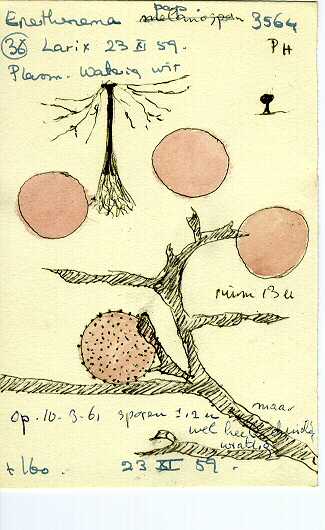 pap.
Enerthenema melanosperm 3564
36 Larix 23 XI 59. PH
Plasm. Waterig wit
ruim 13 u
op. 10-3-61 sporen ± 12 u maar
wel heel duidelijk
wrattig
± 160. 23 XI 59.